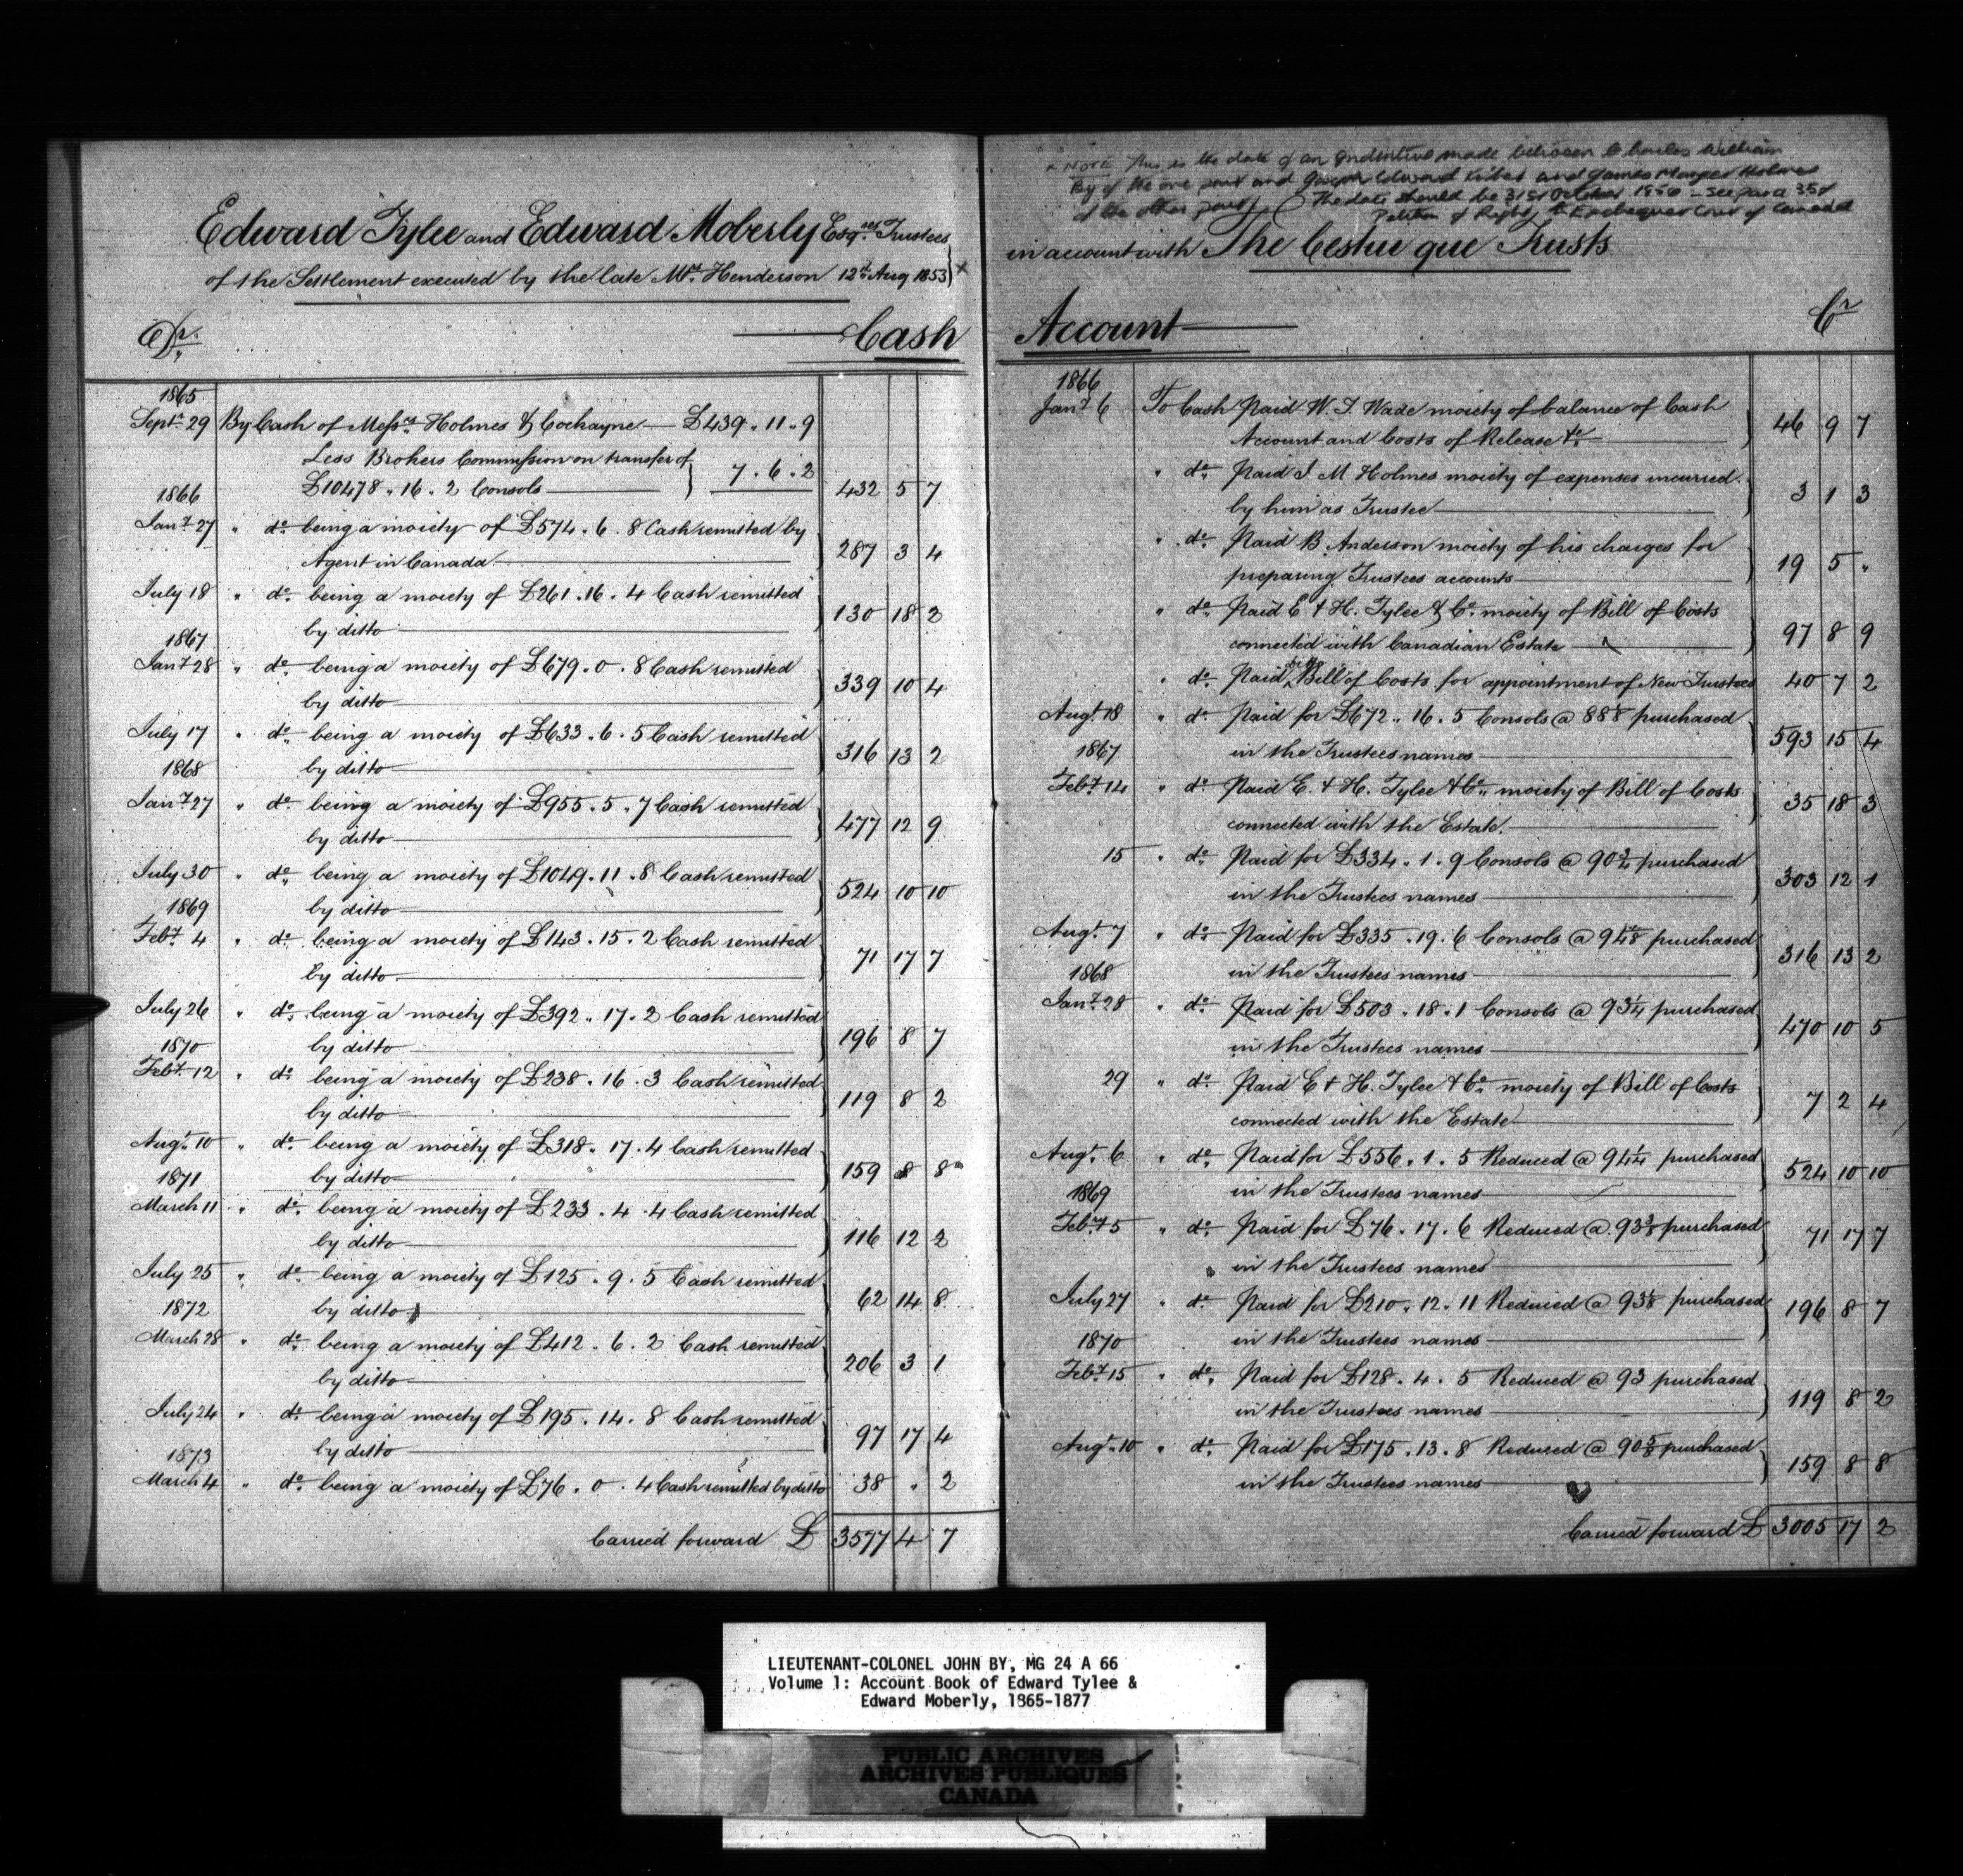 Edward Tylee and Edward Moberly Esqres Trustees
of the Settlement executed by the late Mrs. Henderson 12th Aug 1853 x
Dr.
Cash
1865
Septr 29 By Cash of Messrs Holmes & Cochayne £439 . 11 . 9
Less Brokers Commission on transfer of
£10478 . 16 . 2 Consols 7 . 6 . 2 432 5 7
1866
Jany 27 " do being a moiety of £574 . 6 . 8 Cash remitted by
Agent in Canada 287 3 4
July 18 " do being a moiety of £261 . 16 . 4 Cash remitted
by ditto 130 18 2
1867
Jany 28 " do being a moiety of £679 . 0 . 8 Cash remitted
by ditto 339 10 4
July 17 " do being a moiety of £633 . 6 . 5 Cash remitted
by ditto 316 13 2
1868
Jany 27 " do being a moiety of £955 . 5 . 7 Cash remitted
by ditto 477 12 9
July 30 " do being a moiety of £1049 . 11 . 8 Cash remitted
by ditto 524 10 10
1869
Feby 4 " do being a moiety of £143 . 15 . 2 Cash remitted
by ditto 71 17 7
July 26 " do being a moiety of £392 . 17 . 2 Cash remitted
by ditto 196 8 7
1870
Feby 12 " do being a moiety of £238 . 16 . 3 Cash remitted
by ditto 119 8 2
Augt 10 " do being a moiety of £318 . 17 . 4 Cash remitted
by ditto 159 8 8
1871
March 11 " do being a moiety of £233 . 4 . 4 Cash remitted
by ditto 116 12 2
July 25 " do being a moiety of £125 . 9 . 5 Cash remitted
by ditto 62 14 8
1872
March 28 " do being a moiety of £412 . 6 . 2 Cash remitted
by ditto 206 3 1
July 24 " do being a moiety of £195 . 14 . 8 Cash remitted
by ditto 97 17 4
1873
March 4 " do being a moiety of £76 . 0 . 4 Cash remitted by ditto 38 " 2
Carried forward £ 3577 4 7
x NOTE This is the date of an Indenture made between Charles William
By of the one part and Joseph Edward and James Holmes
of the other part. The date should be 31st October 1856 - See para 35 of
Petition of Right to Exchequer Court of Canada
in account with The Cestui que Trusts
Account
Cr
1866
Jany 6 To Cash Paid W. T. Wade moiety of balance of Cash
Account and Costs of Release &c 46 9 7
" do Paid J M Holmes moiety of expenses incurred
by him as Trustee 3 1 3
" do Paid B. Anderson moiety of his charges for
preparing Trustees accounts 19 5 "
" do Paid E & H. Tylee & Co moiety of Bill of Costs
connected with Canadian Estate 97 8 9
" do Paid ditto Bill of Costs for appointment of New Trustees 40 7 2
Augt 18 " do Paid for £672 . 16 . 5 Consols @ 88⅛ purchased
in the Trustees names 593 15 4
1867
Feby 14 " do Paid E. & H. Tylee & Co moiety of Bill of Costs
connected with the Estate 35 18 3
15 " do Paid for £334 . 1 . 9 Consols @ 90¾ purchased
in the Trustees names 303 12 1
Augt 7 " do Paid for £335 . 19 . 6 Consols @ 94⅛ purchased
in the Trustees names 316 13 2
1868
Jany 28 " do Paid for £503 . 18 . 1 Consols @ 93¼ purchased
in the Trustees names 470 10 5
29 " do Paid E & H. Tylee & Co moiety of Bill of Costs
connected with the Estate 7 2 4
Augt 6 " do Paid for £556 . 1 . 5 Reduced @ 94¼ purchased
in the Trustees names 524 10 10
1869
Feby 5 " do Paid for £76 . 17 . 6 Reduced @ 93⅜ purchased
in the Trustees names 71 17 7
July 27 " do Paid for £210 . 12 . 11 Reduced @ 93⅛ purchased
in the Trustees names 196 8 7
1870
Feby 15 " do Paid for £128 . 4 . 5 Reduced @ 93 purchased
in the Trustees names 119 8 2
Augt 10 " do Paid for £175 . 13 . 8 Reduced @ 90⅝ purchased
in the Trustees names 159 8 8
Carried forward £ 3005 17 2
LIEUTENANT-COLONEL JOHN BY, MG 24 A 66
Volume 1: Account Book of Edward Tylee &
Edward Moberly, 1865-1877
PUBLIC ARCHIVES
ARCHIVES PUBLIQUES
CANADA